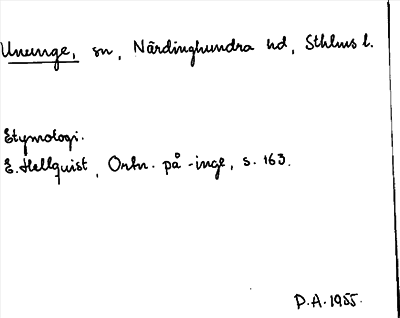 Ununge, sn, Närdinghundra hd, Sthlms l.
Etymologi.
E. Hellquist, Ortn. på -inge, s. 163.
P.A. 1955.